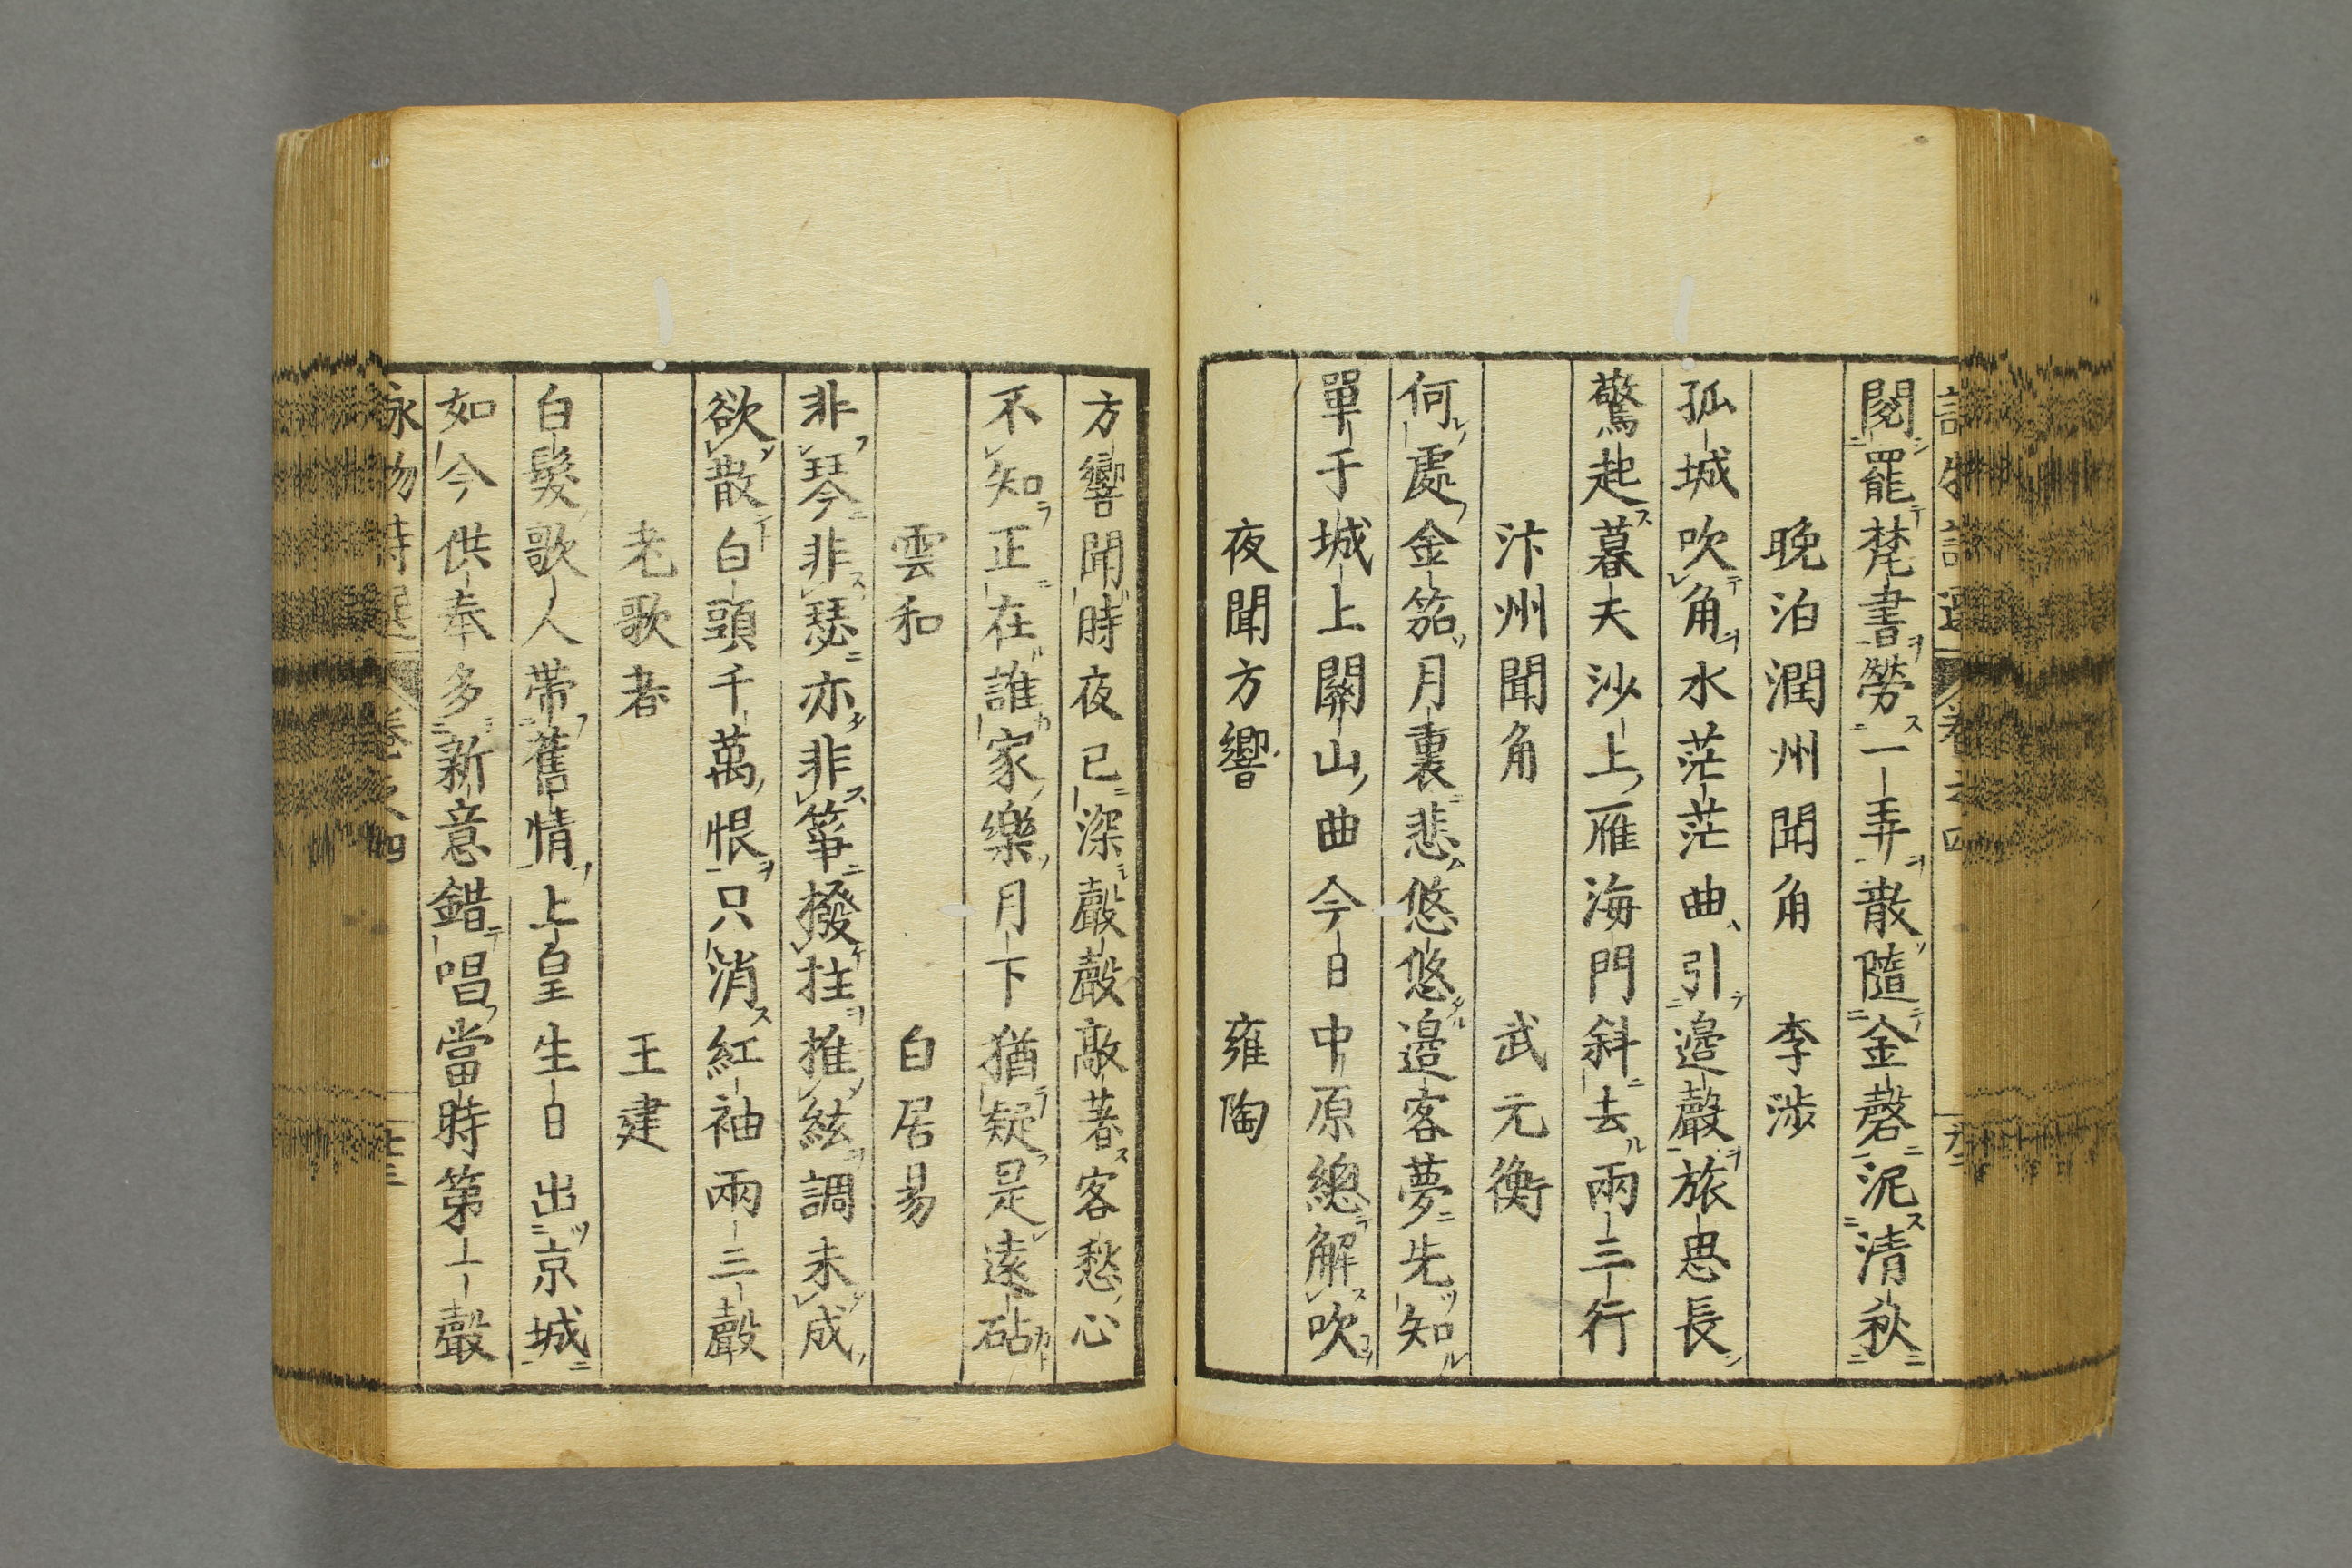 閱罷梵書勞一弄散隨金磬泥清秋
晩泊潤州聞角　李渉
孤城吹角水茫茫曲引邉聲旅思長
驚起暮天沙上雁海門斜去兩三行
汴州聞角　武元衡
何處金笳月裏悲悠悠邉客夢先知
單于城上關山曲今日中原總解吹
夜聞方響　雍陶
方響聞時夜已深聲聲敲著客愁心
不知正在誰家樂月下猶疑是遠砧
雲和　白居易
非琴非瑟亦非箏撥柱推絃調未成
欲散白頭千萬恨只消紅袖兩三聲
老歌者　王建
白髮歌人帶舊情上皇生日出京城
如今供奉多新意錯唱當時第一聲
詠物詩選　卷之四